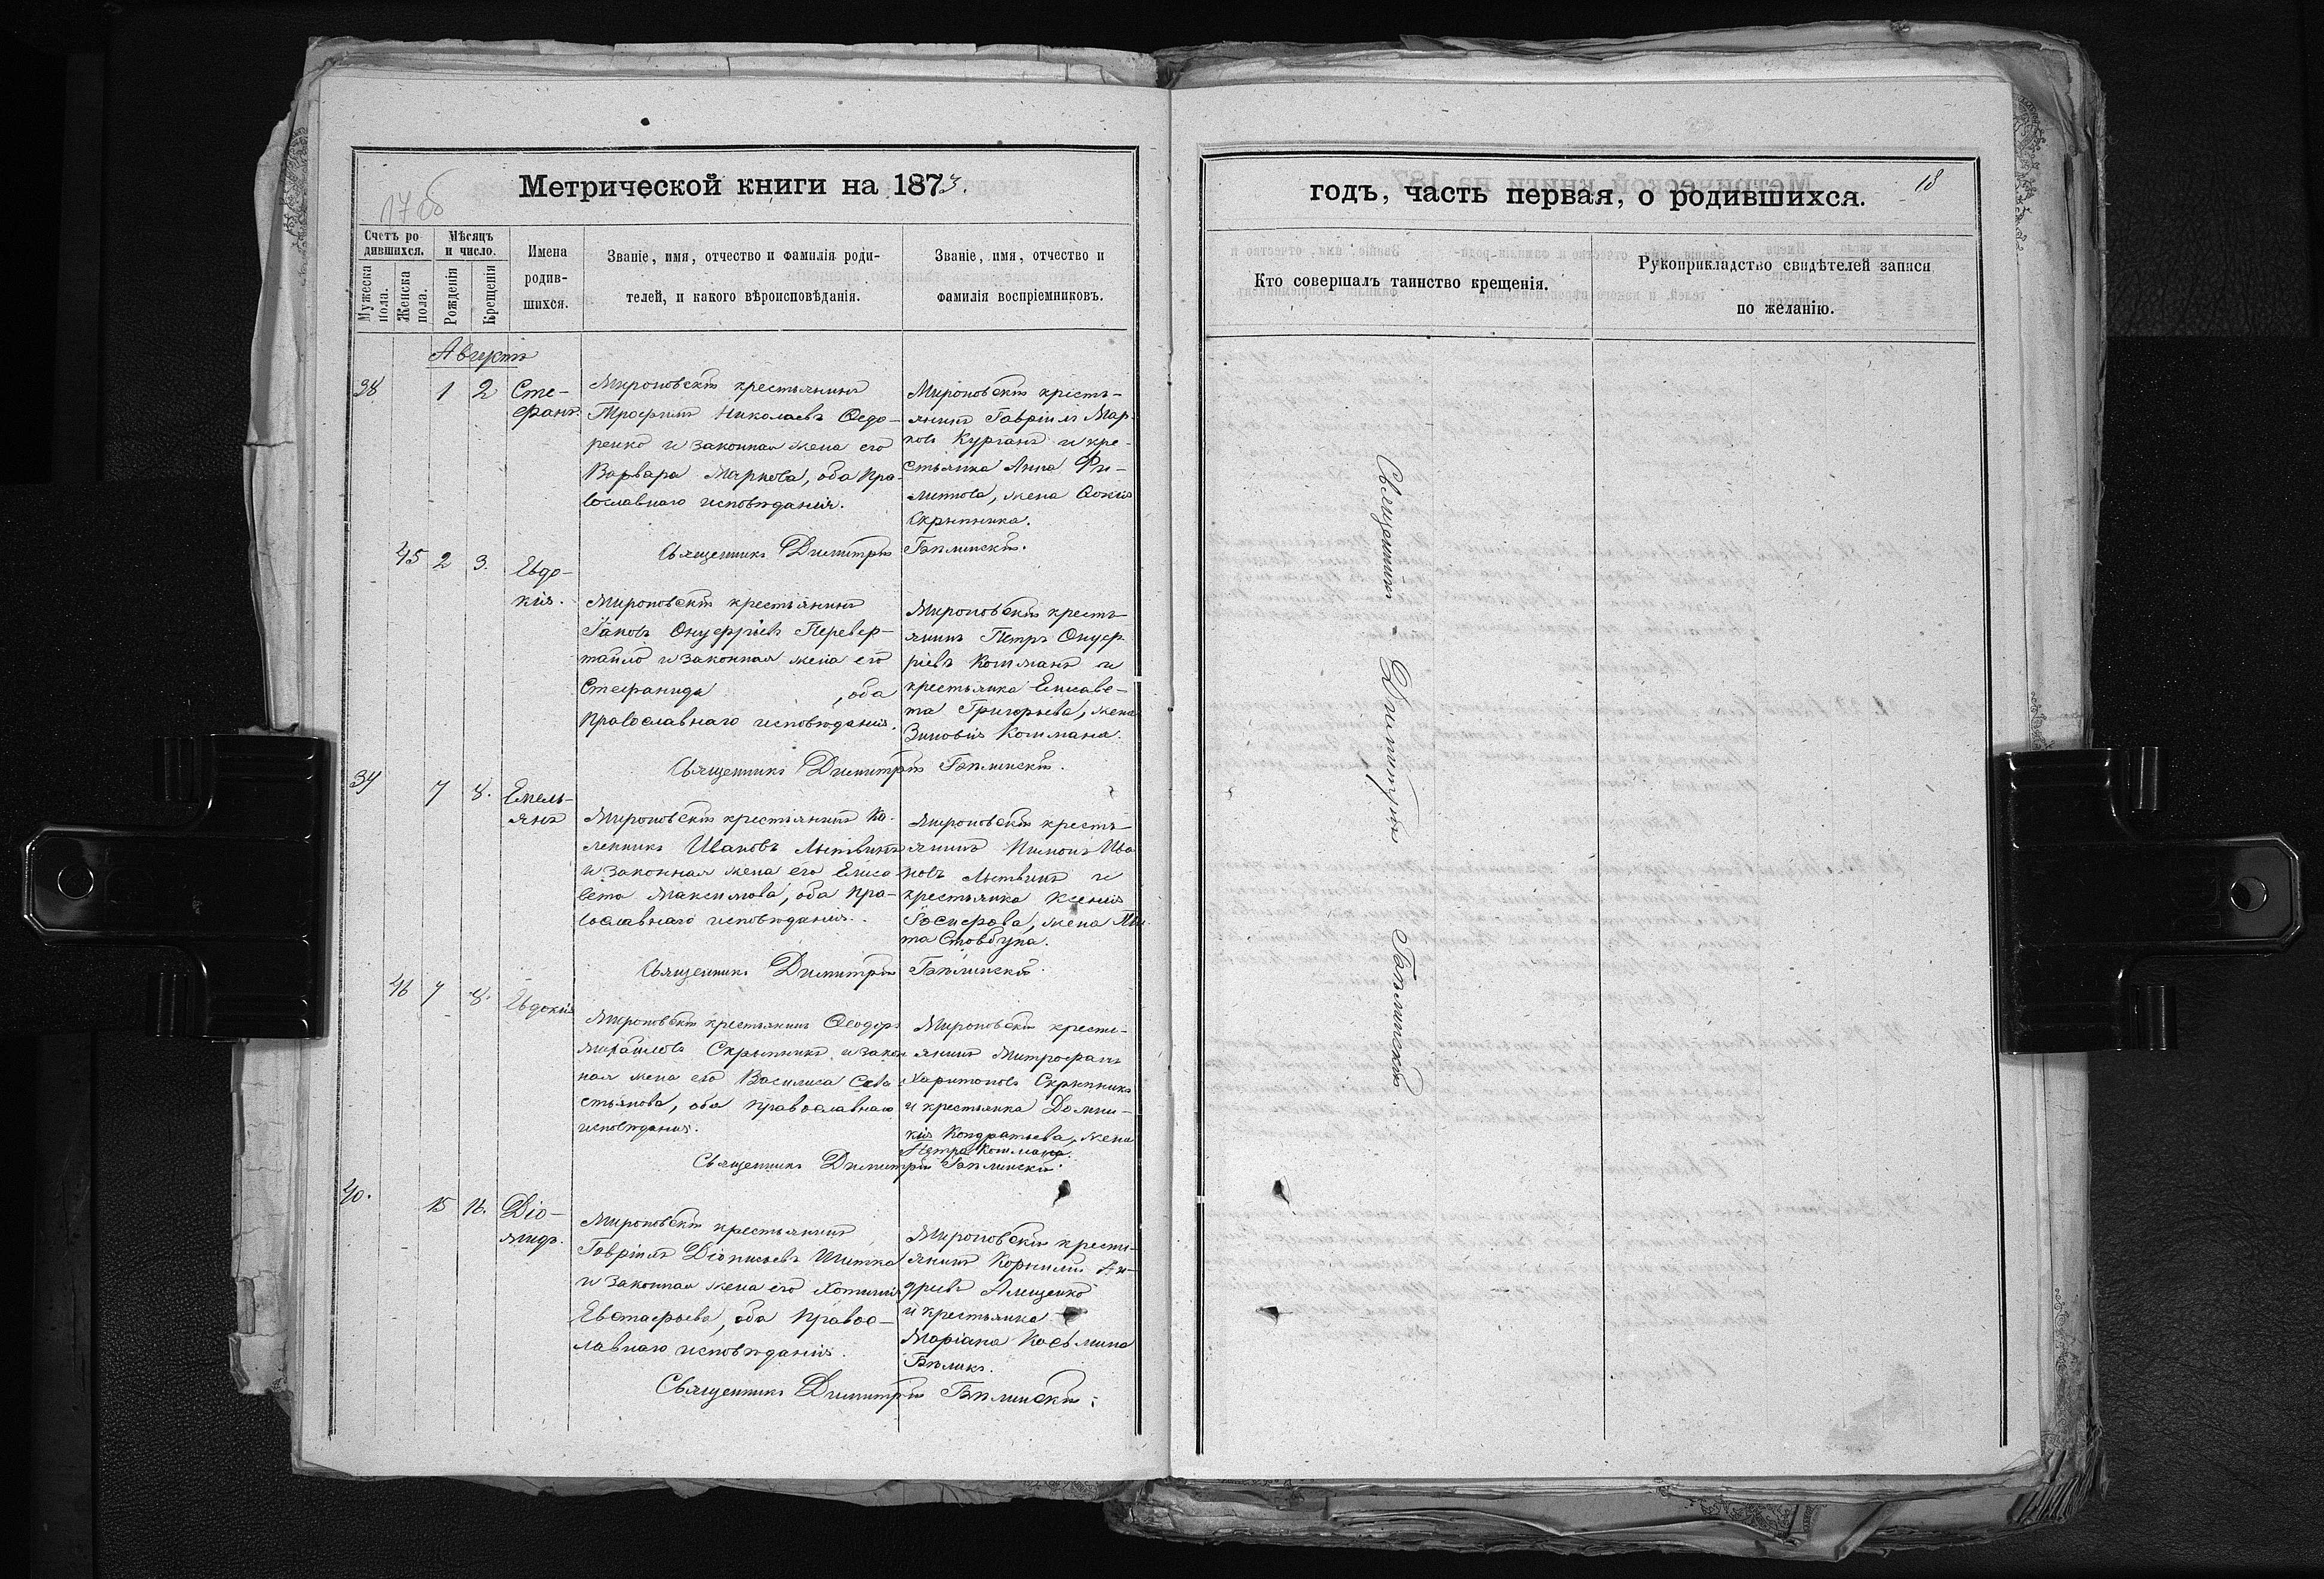 Метрической книги на 1873.
17 об
Счетъ ро-
дившихся.
Мужеска
пола.
Женска
пола.
Мѣсяцъ
и число.
Рожденія
Крещенія
Имена
родив-
шихся.
Званіе, имя, отчество и фамилія роди-
телей, и какого вѣроисповѣданія.
Званіе, имя, отчество и
фамилія воспріемниковъ.
Августъ
38 1 2 Сте-
фанъ.
Мироновскій крестьянинъ
Трофимъ Николаевъ Ѳедо-
ренко и законная жена его
Варвара Маркова, оба Пра-
вославнаго исповѣданія.
Мироновскій крестъ-
янинъ Гавріилъ Мар-
ковъ Курганъ и кре-
стьянка Анна Фи-
липпова, жена Ѳокія
Скрыпника.
Священникъ Димитрій Бѣлинскій.
45 2 3. Евдо-
кія.
Мироновскій крестьянинъ
Іаковъ Онуфріевъ Перевер-
тайло и законная жена его
Стефанида , оба
Православнаго исповѣданія.
Мироновскій кресть-
янинъ Петръ Онуф-
ріевъ Кошманъ и
крестьянка Елисаве-
та Григорьева, жена
Зиновія Кошмана.
Священникъ Димитрій Бѣлинскій.
39 7 8. Емель-
янъ
Мироновскій крестьянинъ Ка-
ленникъ Ивановъ Литвинъ
и законная жена его Елиса-
вета Максимова, оба пра-
вославнаго исповѣданія.
Мироновскій кресть-
янинъ Пименъ Ива-
новъ Литвинъ и
крестьянка Ксенія
Іосифова, жена
та Стовбуна.
Священникъ Димитрій Бѣлинскій.
46 7 8. Евдокія
Мироновскій крестьянинъ Ѳеодоръ
Михайловъ Скрыпникъ и закон-
ная жена его Василиса Сева-
стьянова, оба православнаго
исповѣданія.
Мироновскій кресть-
янинъ Митрофанъ
Харитоновъ Скрыпникъ
и крестьянка Домни-
кія Кондратьева, жена
Петра Кошмана.
Священникъ Димитрій Бѣлинскій.
40. 15 16. Діо-
мидъ.
Мироновскій крестьянинъ
Гавріилъ Діонисьевъ Шитка
и законная жена его Хотинія
Евстафьева, оба Правос-
лавнаго исповѣданія.
Мироновскій кресть-
янинъ Корнилій Ан-
дреевъ Алещенко
и крестьянка
Маріана Косьмина
Бѣликъ.
Священникъ Димитрій Бѣлинскій.
годъ, часть первая, о родившихся.
18
Кто совершалъ таинство крещенія.
Рукоприкладство свидѣтелей записи
по желанію.
Священникъ Димитрій Бѣлинскій.